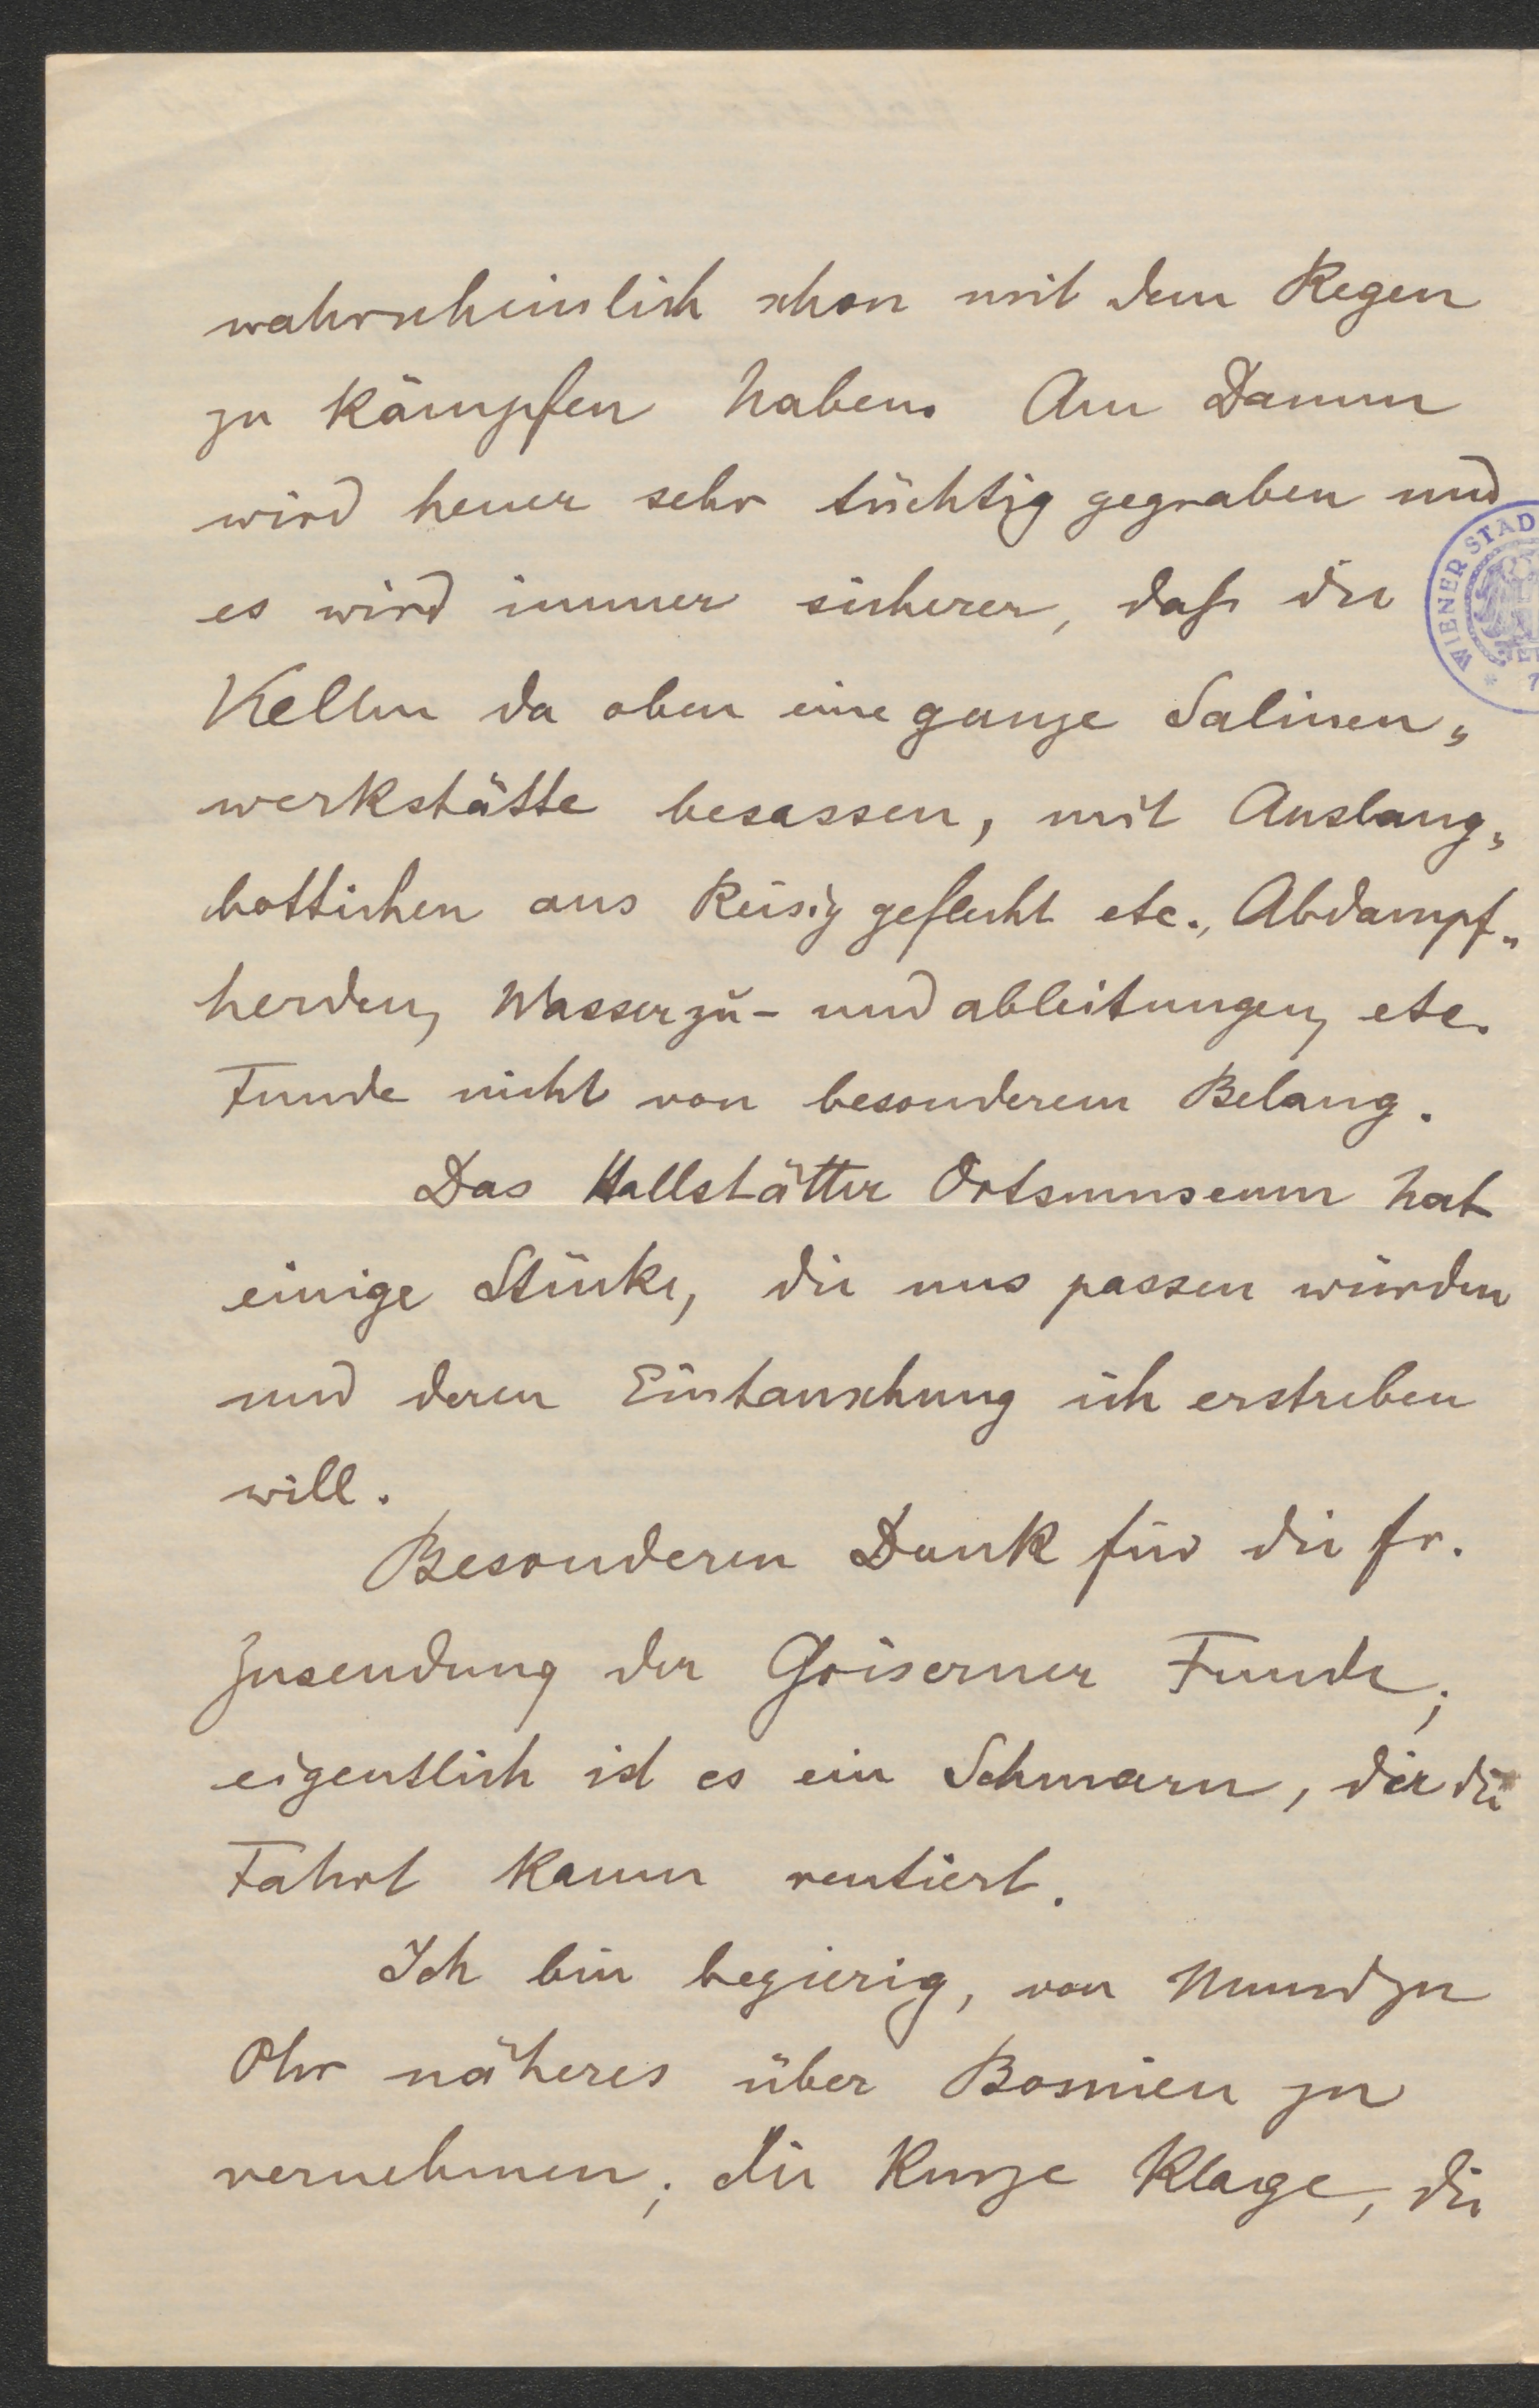 wahrscheinlich schon mit dem Regen
zu kämpfen haben. Am Damm
wird heuer sehr tüchtig gegraben und
es wird immer sicherer, daß die
Kelten da oben eine ganze Salinen„
werkstätte besassen, mit Auslaug„
bottichen aus Reisig geflecht etc., Abdampf„
herden, Wasserzu- und ableitungen, etc.
Funde nicht von besonderem Belang.
Das Hallstätter Ortsmuseum hat
einige Stücke, die uns passen würden
und deren Eintauschung ich erstreben
will.
Besonderen Dank für die fr.
Zusendung der Goiserner Funde;
eigentlich ist es ein Schmarn, der die
Fahrt kaum rentiert.
Ich bin begierig, von Mund zu
Ohr näheres über Bosnien zu
vernehmen; die kurze Klage, die
WIENER STAD